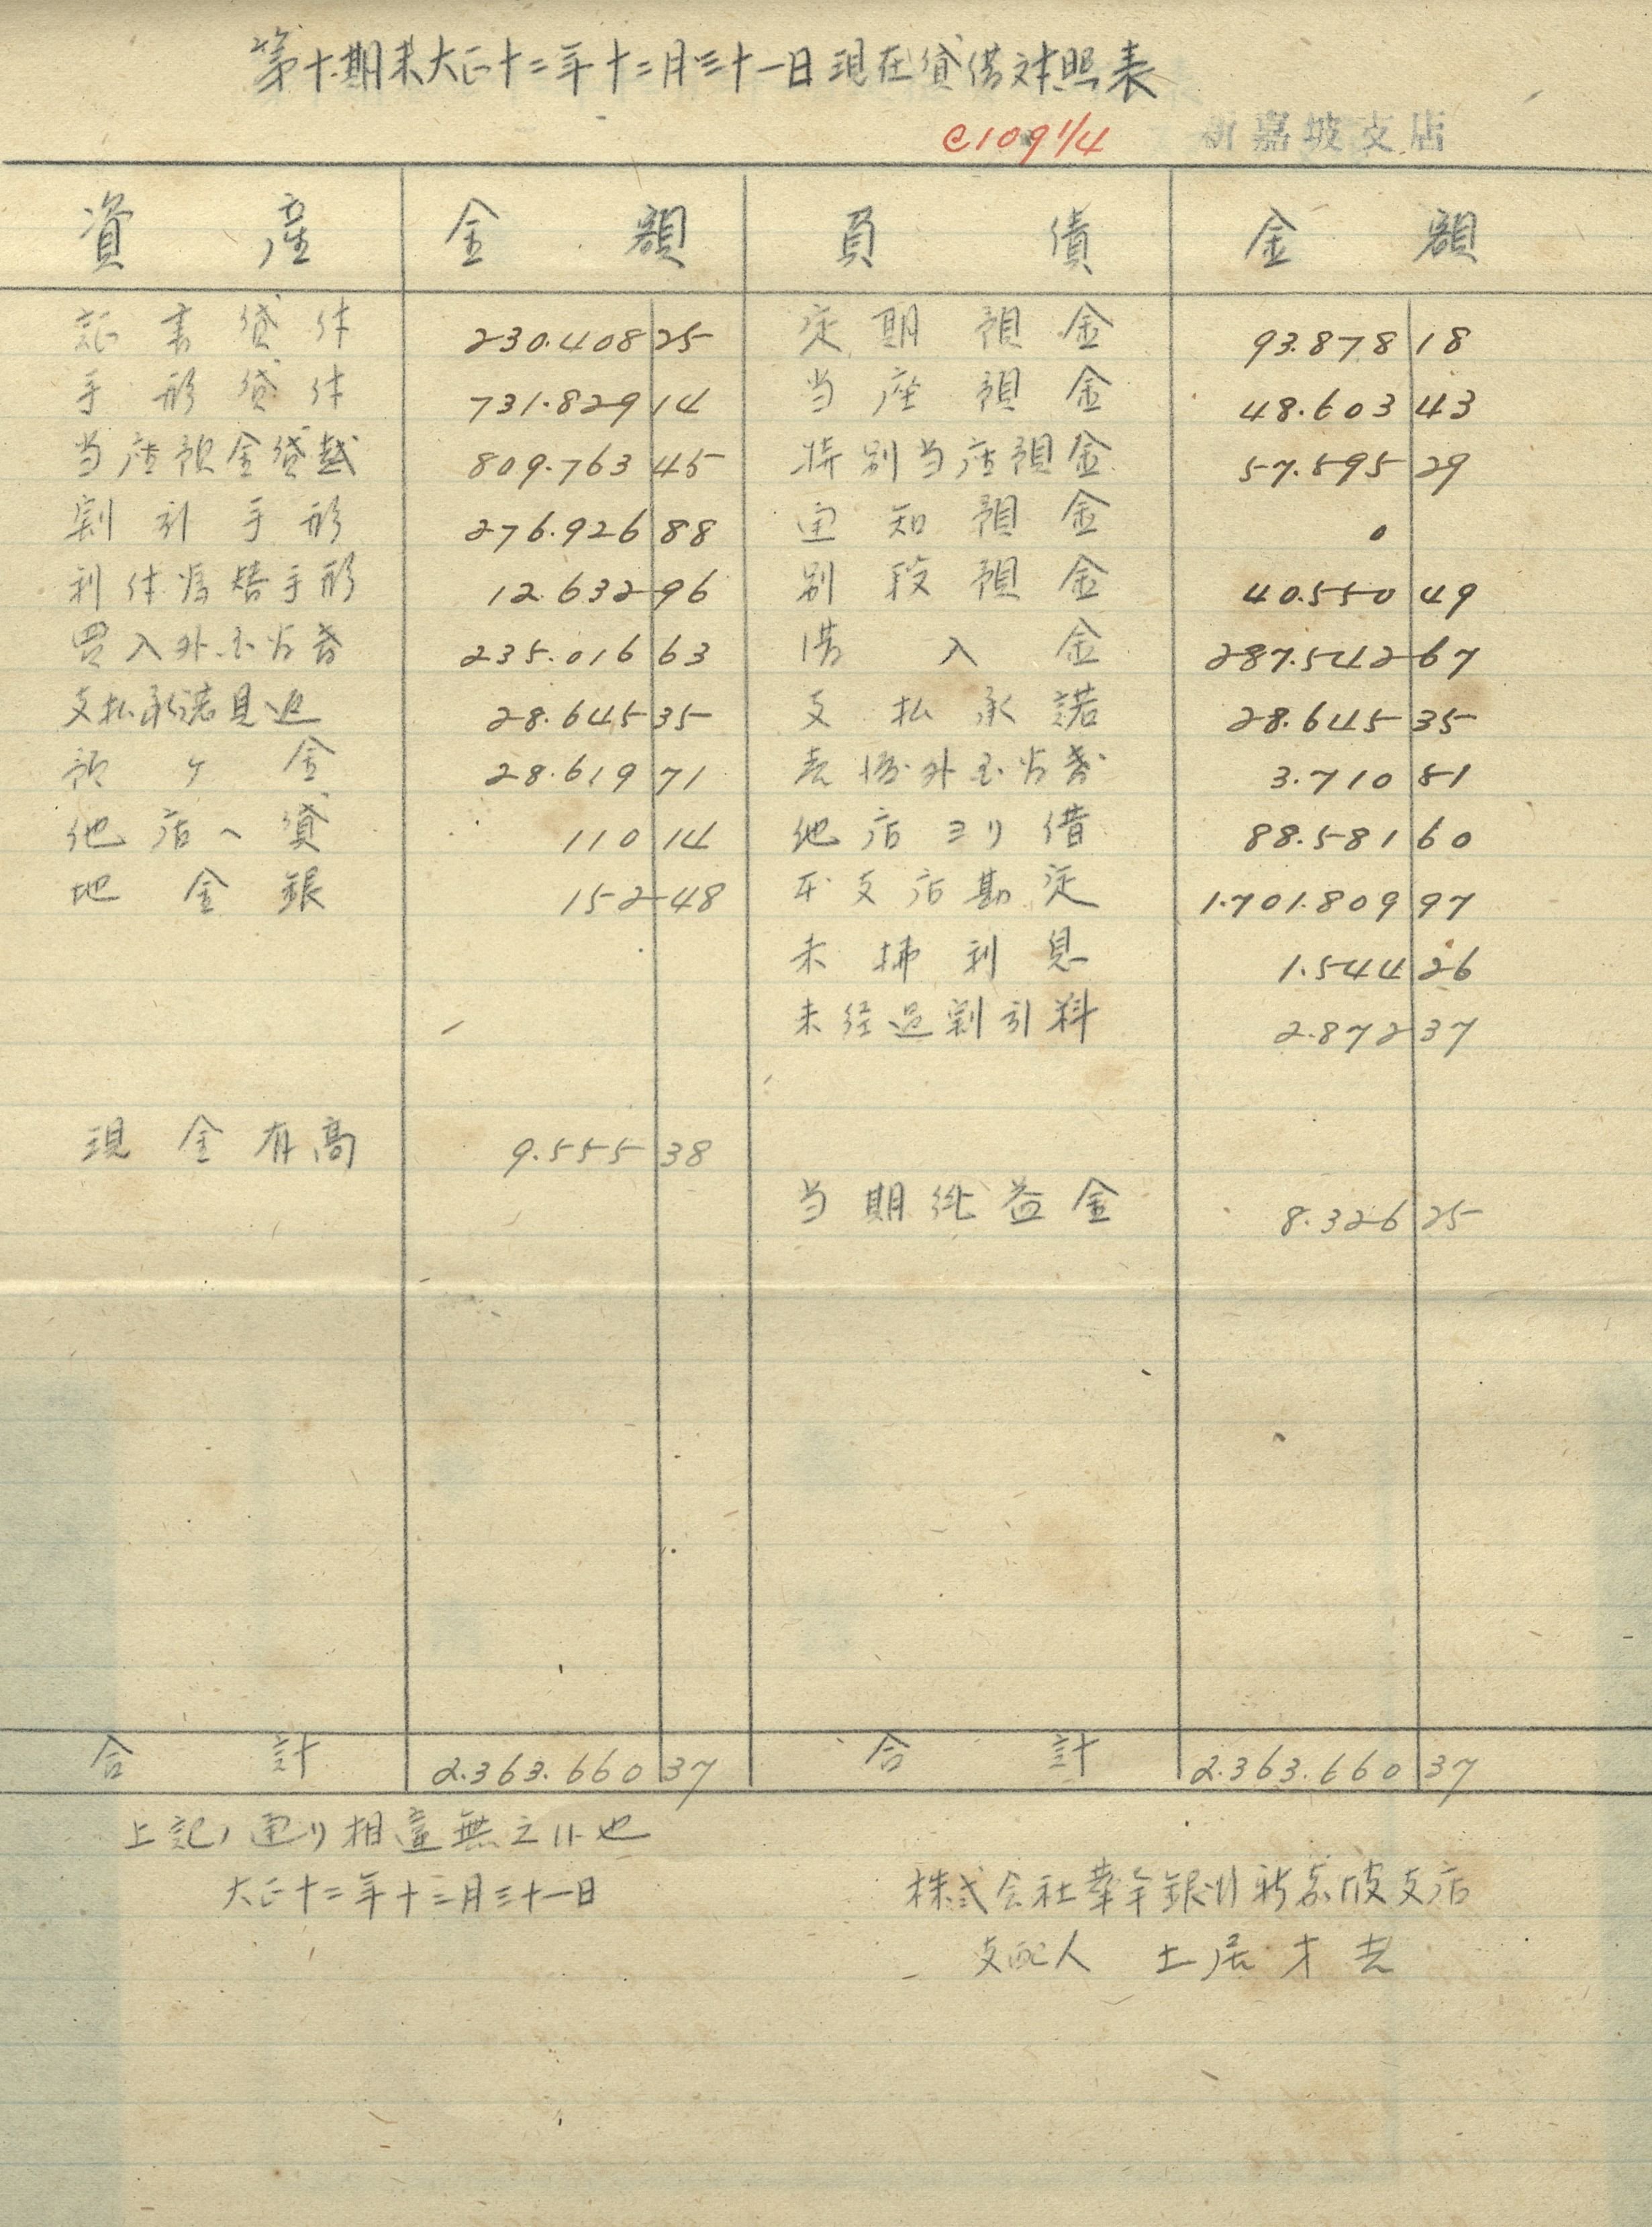 第十期末大正十二年十二月三十一日現在貸借対照表
@109 1/4 新嘉坡支店
資産 金額 負債 金額
証書貸付 230.408 25 定期預金 93.878 18
手形貸付 731.829 14 当座預金 48.603 43
当座預金貸越 809.763 45 特別当座預金 57.595 29
割引手形 276.926 88 通知預金 0
利付為替手形 12.632 96 別段預金 40.550 49
買入外国為替 235.016 63 借入金 287.542 67
支払承諾見返 28.645 35 支払承諾 28.645 35
預ケ金 28.619 71 売渡外国為替 3.710 51
他店ヘ貸 110 14 他店ヨリ借 88.581 60
地金銀 152 48 本支店勘定 1.701.809 97
未払利息 1.544 26
未経過割引料 2.872 37
現金有高 9.555 38
当期純益金 8.326 25
合計 2.363.660 37 合計 2.363.660 37
上記ノ通リ相違無之候也
大正十二年十二月三十一日 株式会社華南銀行新嘉坡支店
支配人 土居才吉